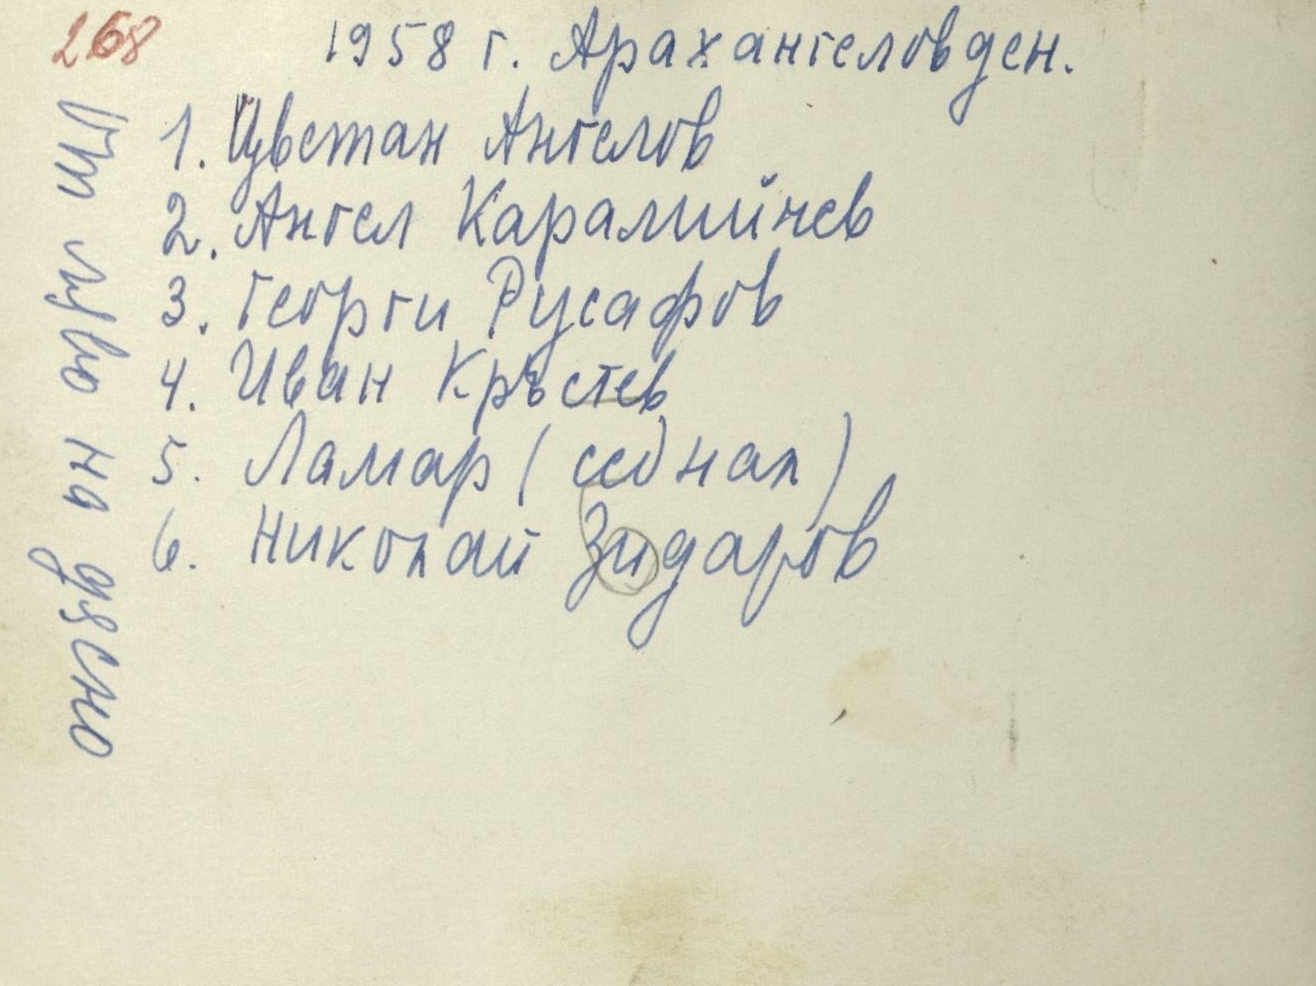 268
1958 г. Арахангеловден.
От ляво на дясно
1. Цветан Ангелов
2. Ангел Каралийчев
3. Георги Русафов
4. Иван Кръстев
5. Ламар (седнал)
6. Николай Зидаров